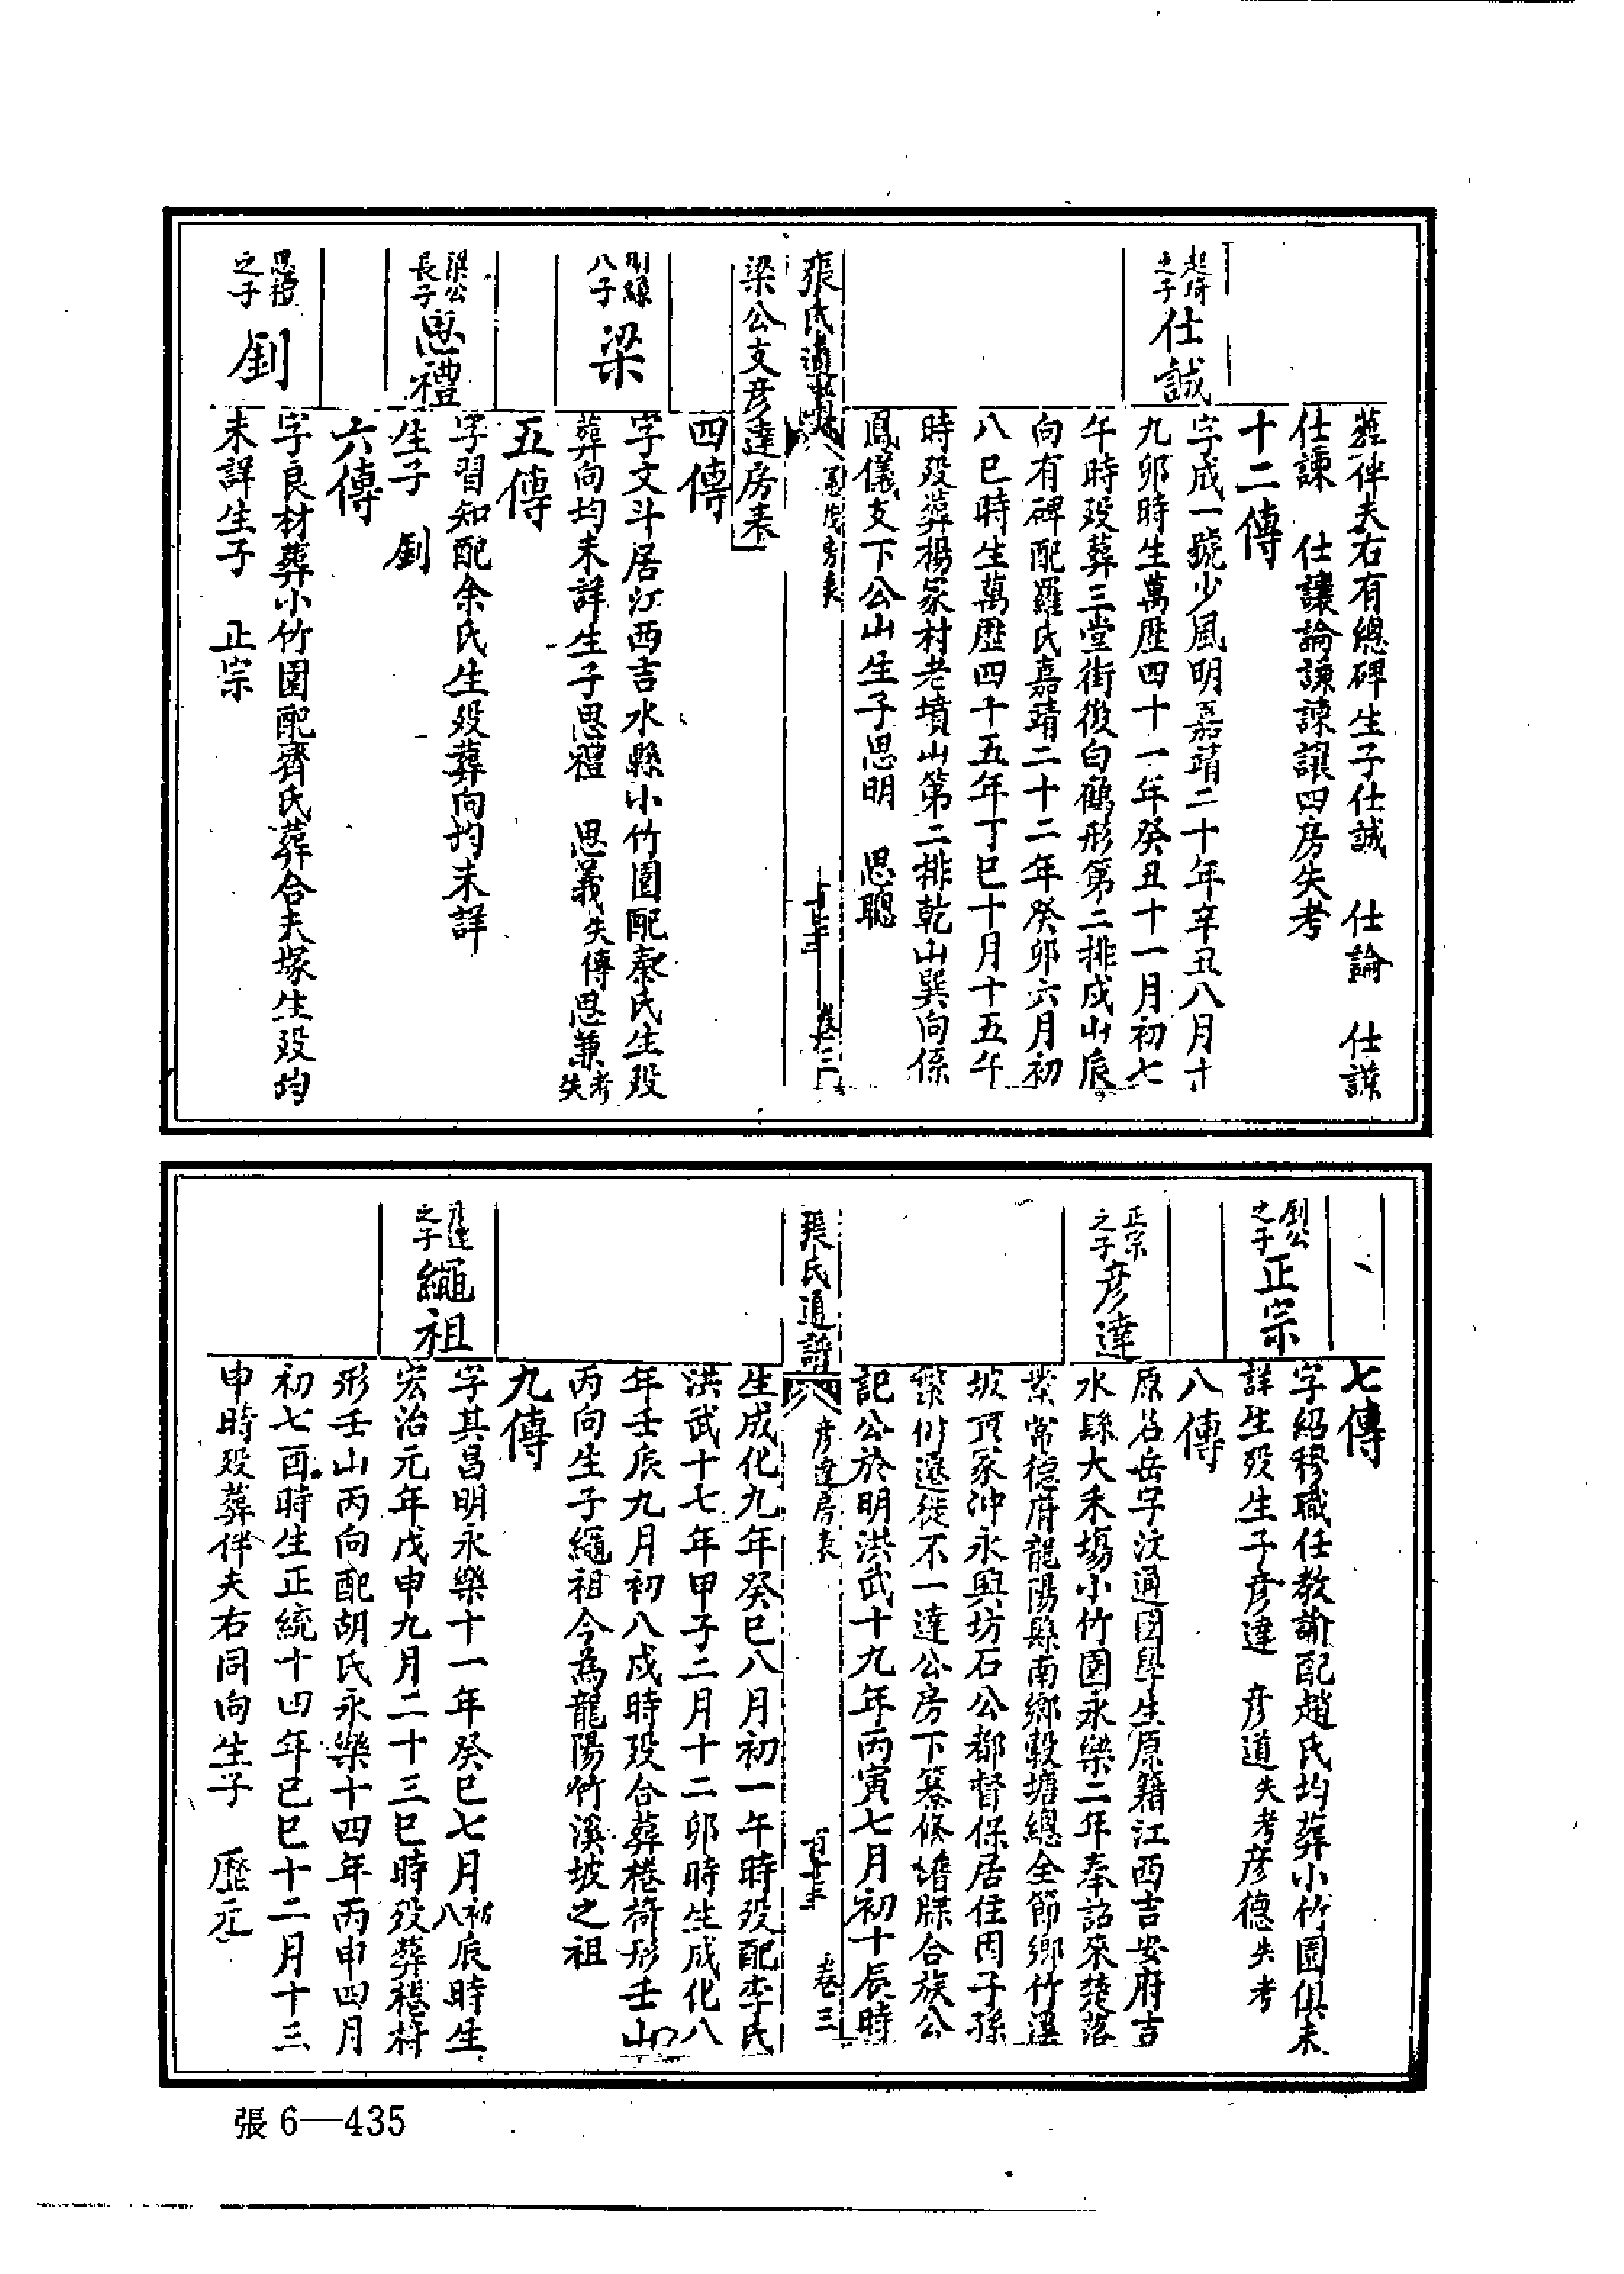 葬伴夫右有總碑生子仕誠　仕論　仕謙
仕諫　仕讓論謙諫讓四房失考
十二傳
之子仕誠
字成一號少風明嘉靖二十年辛丑八月十
九卯時生萬歷四十一年癸丑十一月初七
午時殁葬三堂街後白鶴形第二排戌山辰
向有碑配羅氏嘉靖二十二年癸卯六月初
八巳時生萬歷四十五年丁巳十月十五午
時殁葬楊家村老墳山第二排乾山巽向係
鳳儀支下公山生子思明　思聰
張氏通譜
房表
卷三
梁公支彥達房表
四傳
八子梁
字文斗居江西吉水縣小竹園配秦氏生殁
葬向均未詳生子思禮　思義失傳思兼失考
五傳
梁公長子思禮
字習知配余氏生殁葬向均未詳
生子　釗
六傳
思禮之子釗
字良材葬小竹園配齊氏葬合夫塚生殁均
未詳生子　正宗
七傳
釗公之子正宗
字紹穆職任教諭配趙氏均葬小竹園俱未
詳生殁生子彥達　彥道失考彥德失考
八傳
正宗之子彥達
原名岳字汶通國學生原籍江西吉安府吉
水縣大禾場小竹園永樂二年奉詔來楚落
業常德府龍陽縣南鄉穀塘總全節鄉竹溪
坡頂家冲永興坊石公都督保居住因子孫
繁衍遷徙不一達公房下纂修譜牒合族公
記公於明洪武十九年丙寅七月初十辰時
張氏通譜
彥達房表
卷三
生成化九年癸巳八月初一午時殁配李氏
洪武十七年甲子二月十二卯時生成化八
年壬辰九月初八戌時殁合葬椅形壬山
丙向生子繩祖今為龍陽竹溪坡之祖
九傳
之子繩祖
字其昌明永樂十一年癸巳七月初八辰時生
宏治元年戊申九月二十三巳時殁葬椅
形壬山丙向配胡氏永樂十四年丙申四月
初七酉時生正統十四年己巳十二月十三
申時殁葬伴夫右同向生子　歷元
張 6—435